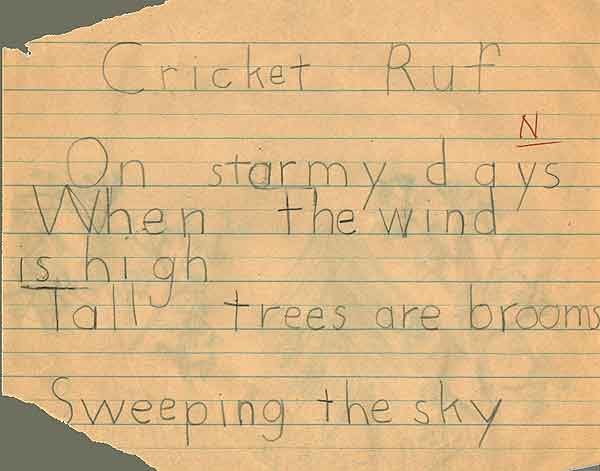 Cricket Ruf
N
On starmy days
When the wind
is high
Tall trees are brooms
Sweeping the sky